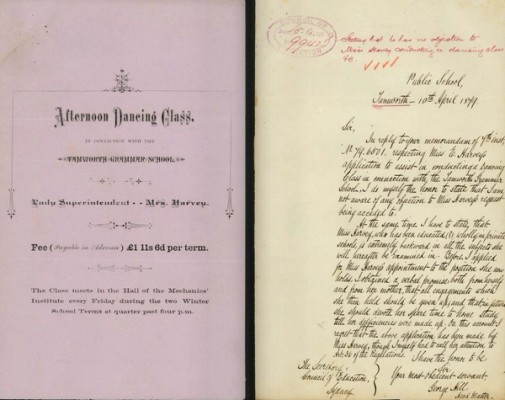 Afternoon Dancing Class.
IN CONNECTION WITH THE
TAMWORTH GRAMMAR SCHOOL.
Lady Superintendent - - Mrs. Harvey.
Fee (Payable in Advance) £1 11s 6d per term.
The Class meets in the Hall of the Mechanics'
Institute every Friday during the two Winter
School Terms at quarter past four p.m.
he has no objection to
Miss Harvey conducting a dancing class
Public School,
Tamworth - 10th April 1879
Sir,
In reply to your memorandum of 7th inst,
No 79.6571, respecting Miss E. Harvey's
application to assist in conducting a Dancing
Class in connection with the Tamworth Grammar
School. I do myself the honor to state that I am
not aware of any objection to Miss Harvey's request
being acceded to.
At the same time I have to state, that
Miss Harvey, who has been educated wholly in private
schools, is extremely backward in all the subjects she
will hereafter be examined in. Before I applied
for Miss Harvey's appointment to the position she now
holds, I obtained a verbal promise both from herself
and from her mother, that all engagements which
she then held should be given up, and that in future
she should devote her spare time to home study
till her deficiencies were made up. On this account I
regret that the above application has been made by
Miss Harvey, though I myself had to call her attention to
Art. 36 of the Regulations. I have the honor to be
Sir
The Secretary
Council of Education,
Sydney
Your most obedient servant
George Hill
Head Master